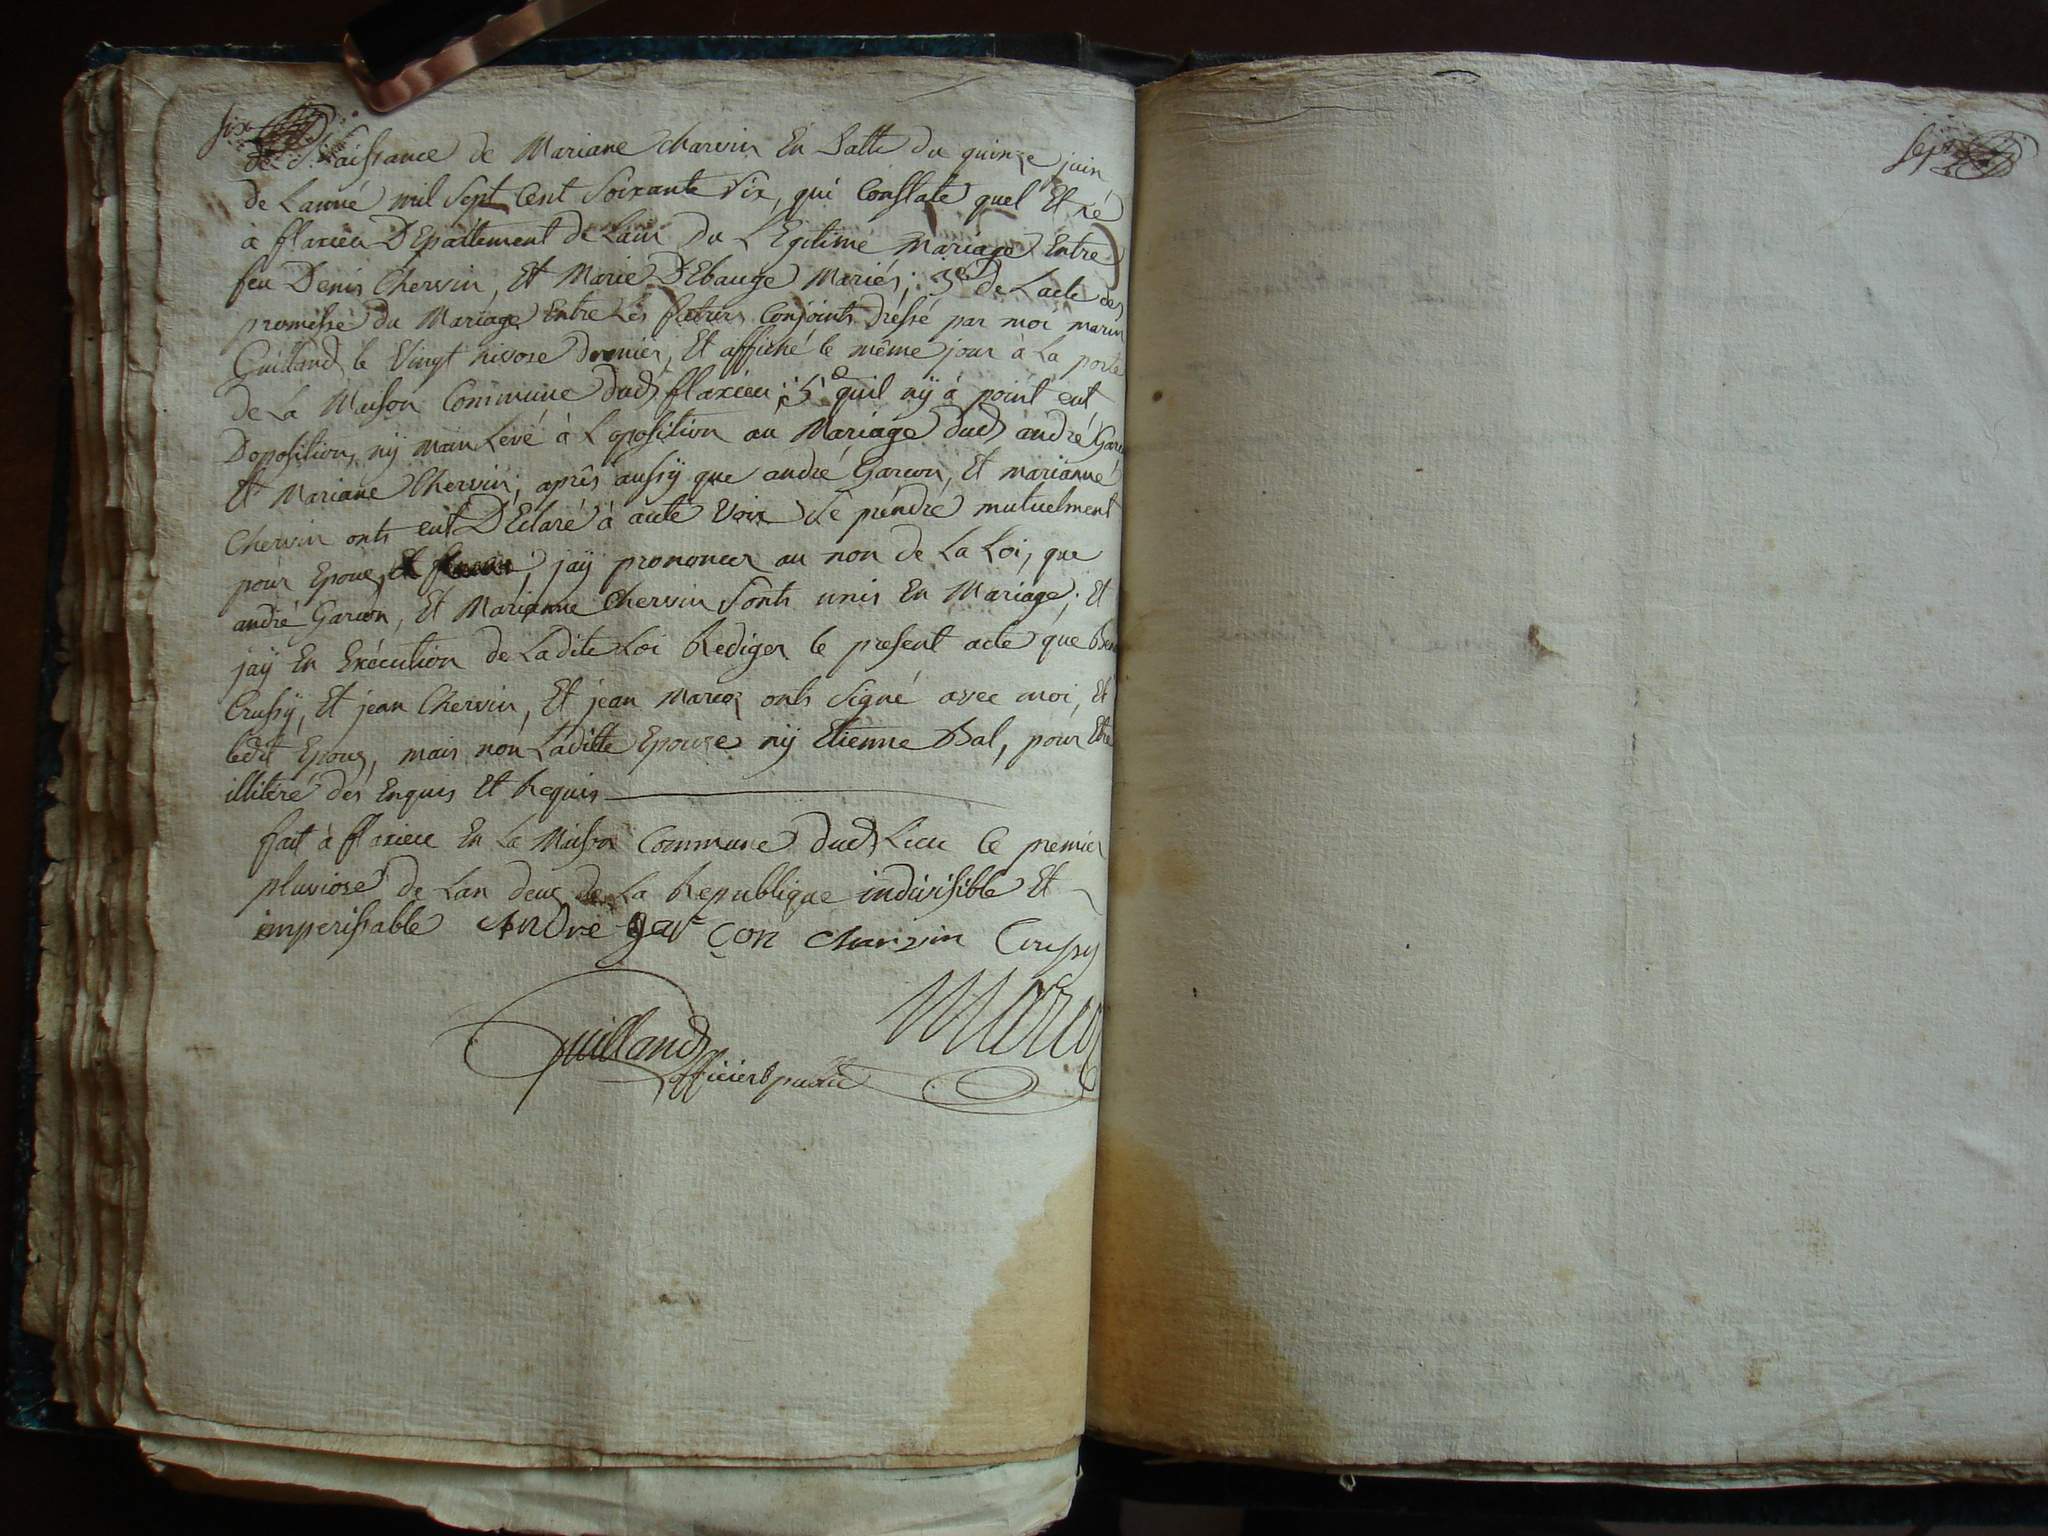 six
de Naissance de Mariane Charvin En Datte du quinze juin
de Lanné mil sept Cent soixante six, qui Constate quel Et né
a flaxieu DEpartement de Lain du LEgitime Mariage Entre
feu Denis Chervin, Et Marie DEbauge Mariés; 3e de Lacte des
promesse du Mariage Entre Les futurs Conjoints dressé par moi marin
Guilland le vingt nivose dernier, Et affiché le même jour à La porte
de La Maison Commune dud flaxieu; 5e quil nÿ à point eut
Doposition, nÿ main Levé à Loposition au Mariage dud andré Garcon
Et Mariane Chervin; après aussÿ que andré Garcon, Et marianne
Chervin onts eut DEclaré à aute Voix se prendre mutuelment
pour Epoux, jaÿ prononcer au non de La Loi, que
andré Garcon, Et Marianne Chervin sonts unis En Mariage; Et
jaÿ En Exécution de Ladite Loi Rediger le present acte que
Crussÿ, Et jean Chervin, Et jean Marcoz onts signé avec moi, Et
ledit Epoux, mais non Laditte Epouze nÿ Etienne Bal, pour Etre
illitéré des Enquis Et Requis
fait à flaxieu En La Maison Commune dud Lieu le premier
pluviose de Lan deux de La Republique indivisible Et
imperissable Andre garcon charvin Crussy
Marcoz
Guilland
officiert public
sept